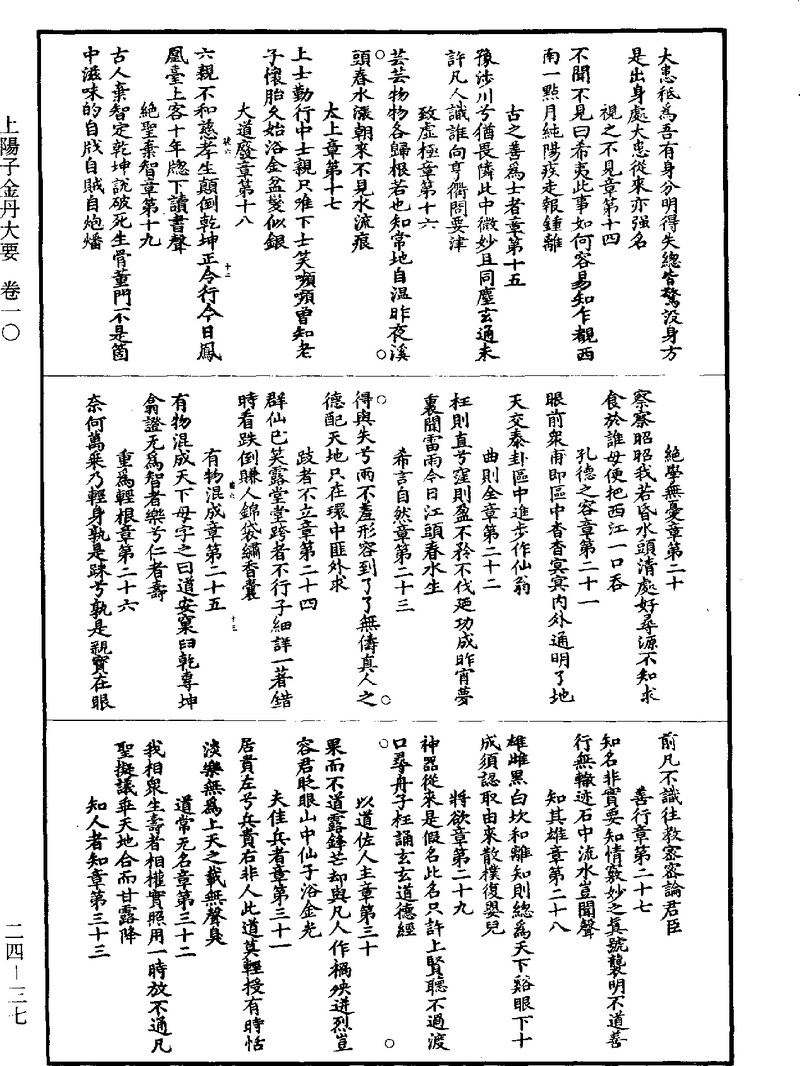 大患秪為吾有身分明得失總皆驚沒身方
是出身處大患從來亦强名
視之不見章第十四
不聞不見曰希夷此事如何容易知乍覩西
南一點月純陽疾走報鍾離
古之善為士者章第十五
豫涉川兮猶畏憐此中微妙且同塵玄通未
許凡人識誰向亨衢問要津
致虛極章第十六
芸芸物物各歸根若也知常地自温昨夜溪
頭春水漲朝來不見水流痕
太上章第十七
上士勤行中士親只唯下士笑嚬嚬曾知老
子懷胎久始浴金盆髮似銀
大道廢章第十八
六親不和慈孝生顛倒乾坤正令行今日鳳
凰臺上客十年牕下讀書聲
絶聖棄智章第十九
古人棄智定乾坤說破死生骨董門不是箇
中滋味的自戕自賊自炮燔
絶學無憂章第二十
察察昭昭我若昏水頭清處好尋源不知求
食於誰母便把西江一口吞
孔德之容章第二十一
眼前衆甫即區中杳杳冥冥内外通明了地
天交泰卦區中進步作仙翁
曲則全章第二十二
枉則直兮窪則盈不矜不伐廼功成昨宵夢
裏聞雷雨今日江頭春水生
希言自然章第二十三
得與失兮兩不羞形容到了了無儔真人之
德配天地只在環中匪外求
跂者不立章第二十四
群仙巳笑露堂堂跨者不行子細詳一著錯
時看跌倒賺人錦袋繡香囊
有物混成章第二十五
有物混成天下母字之曰道安窠臼乾專坤
翕證无為智者樂兮仁者壽
重為輕根章第二十六
奈何萬乘乃輕身孰是踈兮孰是親寳在眼
前凡不識往教密密論君臣
善行章第二十七
知名非實要知情竅妙之真號襲明不道善
行無轍迹石中流水豈聞聲
知其雄章第二十八
雄雌黑白坎和離知則總為天下谿眼下十
成須認取由來散樸復嬰兒
將欲章第二十九
神器從來是假名此名只許上賢聽不過渡
口尋舟子枉誦玄玄道德經
以道佐人主章第三十
果而不道露鋒芒却與凡人作禍殃迸烈豈
容君眨眼山中仙子浴金光
夫佳兵者章第三十一
居貴左兮兵貴右非人此道莫輕授有時恬
淡樂無為上天之載無聲臭
道常无名章第三十二
我相衆生壽者相權實照用一時放不通凡
聖擬議乖天地合而甘露降
知人者知章第三十三
上陽子金丹大要　卷一〇
二四－三七